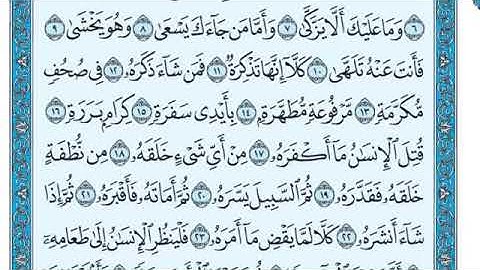 ۝٦ وَمَا عَلَيْكَ أَلَّا يَزَّكَّىٰ ۝٧ وَأَمَّا مَن جَآءَكَ يَسْعَىٰ ۝٨ وَهُوَ يَخْشَىٰ ۝٩
فَأَنتَ عَنْهُ تَلَهَّىٰ ۝١٠ كَلَّآ إِنَّهَا تَذْكِرَةٌ ۝١١ فَمَن شَآءَ ذَكَرَهُۥ ۝١٢ فِى صُحُفٍ
مُّكَرَّمَةٍ ۝١٣ مَّرْفُوعَةٍ مُّطَهَّرَةٍۭ ۝١٤ بِأَيْدِى سَفَرَةٍ ۝١٥ كِرَامٍۭ بَرَرَةٍ ۝١٦
قُتِلَ ٱلْإِنسَٰنُ مَآ أَكْفَرَهُۥ ۝١٧ مِنْ أَىِّ شَىْءٍ خَلَقَهُۥ ۝١٨ مِن نُّطْفَةٍ
خَلَقَهُۥ فَقَدَّرَهُۥ ۝١٩ ثُمَّ ٱلسَّبِيلَ يَسَّرَهُۥ ۝٢٠ ثُمَّ أَمَاتَهُۥ فَأَقْبَرَهُۥ ۝٢١ ثُمَّ إِذَا
شَآءَ أَنشَرَهُۥ ۝٢٢ كَلَّا لَمَّا يَقْضِ مَآ أَمَرَهُۥ ۝٢٣ فَلْيَنظُرِ ٱلْإِنسَٰنُ إِلَىٰ طَعَامِهِۦٓ